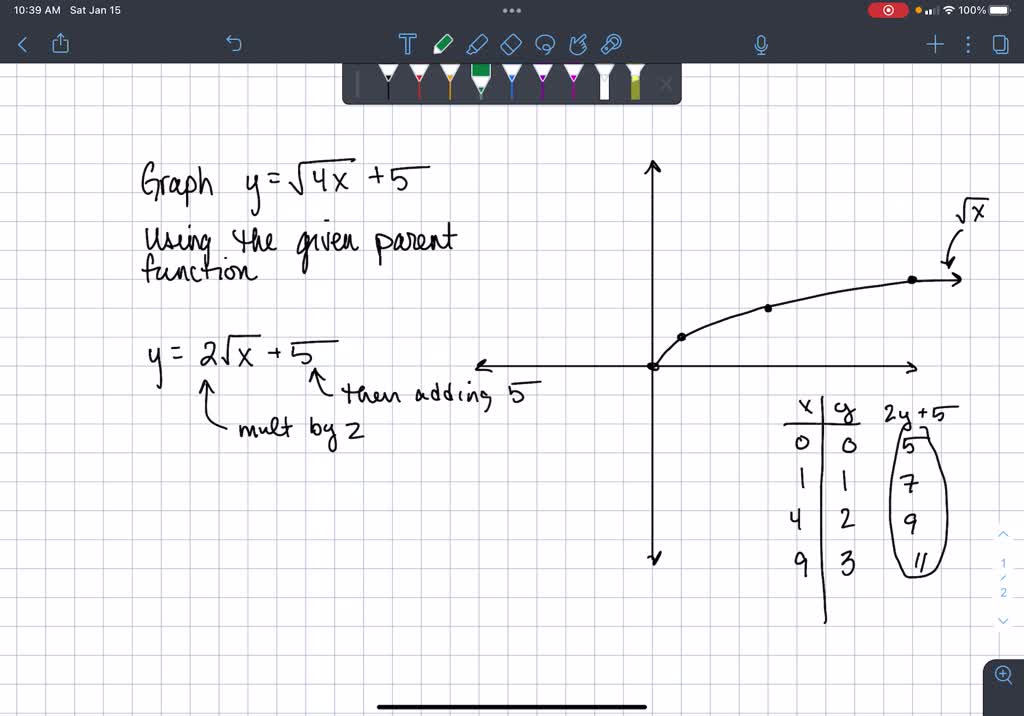 10:39 AM Sat Jan 15
100%
Graph y = √4x + 5
Using the given parent
function
y = 2√x + 5
then adding 5
mult by 2
√x
x y 2y + 5
0 0 5
1 1 7
4 2 9
9 3 11
1
2